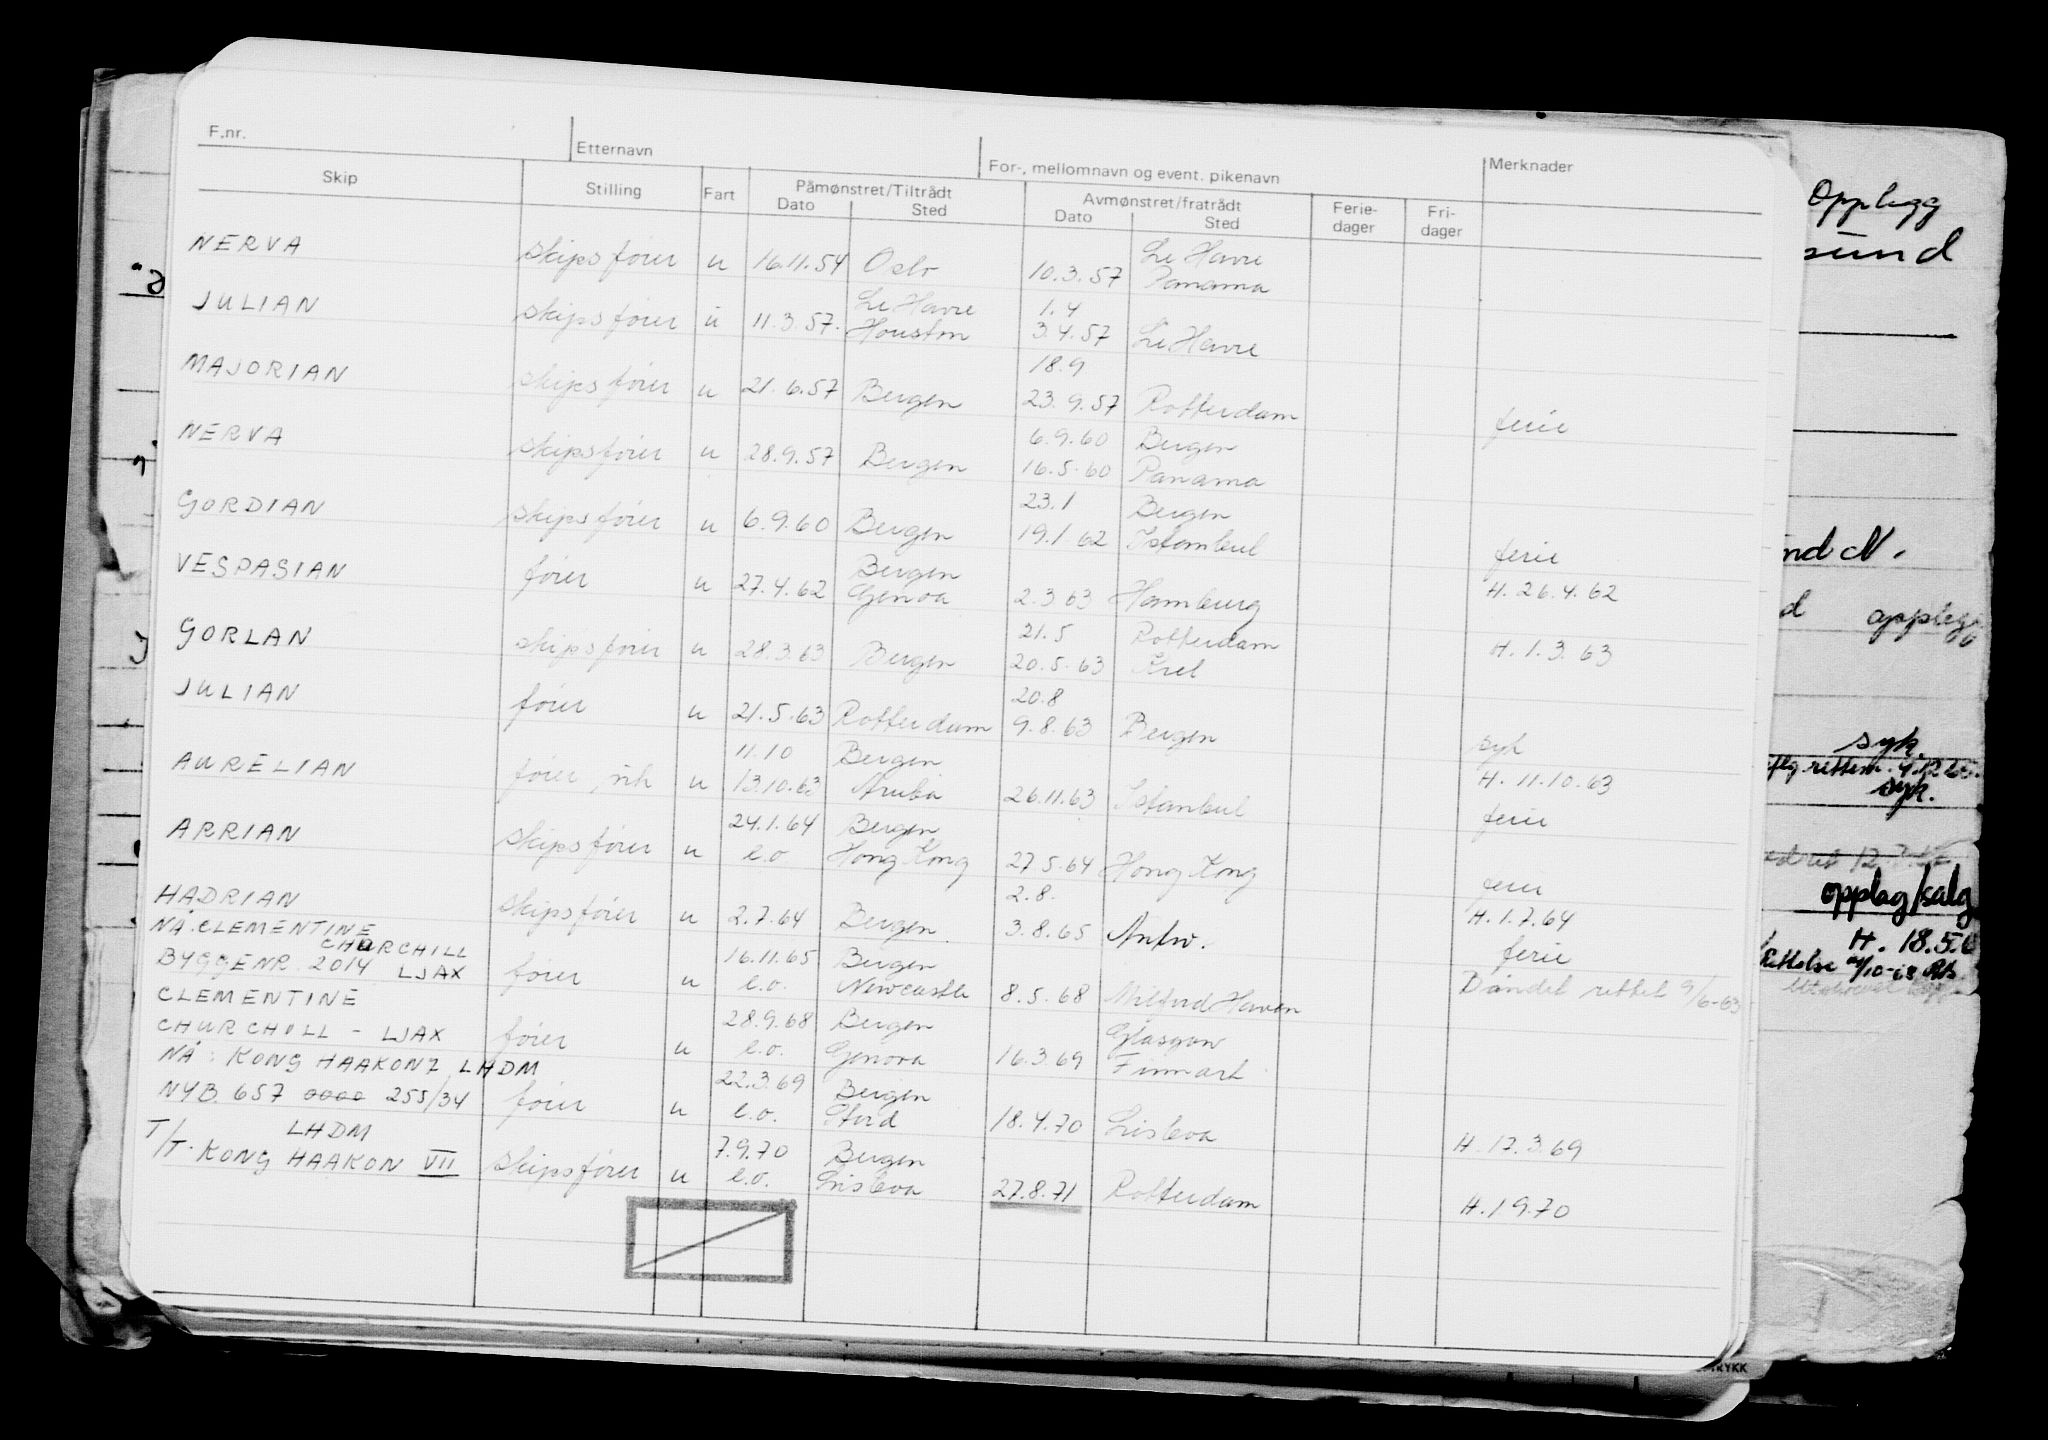 F.nr. Etternavn For-, mellomnavn og event. pikenavn Merknader
Skip Stilling Fart Påmønstret/Tiltrådt Avmønstret/fratrådt Ferie- Fri-
Dato Sted Dato Sted dager dager
Le Havre
NERVA skipsfører u 16.11.54 Oslo 10.3.57 Panama
Le Havre 1.4
JULIAN skipsfører u 11.3.57. Houston 3.4.57 Le Havre
18.9
MAJORIAN skipsfører u 21.6.57 Bergen 23.9.57 Rotterdam ferie
6.9.60 Bergen
NERVA skipsfører u 28.9.57 Bergen 16.5.60 Panama
23.1 Bergen
GORDIAN skipsfører u 6.9.60 Bergen 19.1.62 Istambul ferie
Bergen
VESPASIAN fører u 27.4.62 Genoa 2.3 63 Hamburg H. 26.4.62
21.5 Rotterdam
GORLAN skipsfører u 28.3.63 Bergen 20.5.63 H. 1.3.63
20.8
JULIAN fører u 21.5.63 Rotterdam 9.8.63 Bergen syk
11.10 Bergen
AURELIAN fører u 13.10.63 Aruba 26.11.63 Istanbul H. 11.10.63
24.1.64 Bergen ferie
ARRIAN skipsfører u e.o. Hong Kong 27.5.64 Hong Kong ferie
2.8.
HADRIAN skipsfører u 2.7.64 Bergen 3.8.65 Antw. H. 1.7.64
NÅ: CLEMENTINE ferie
CHURCHILL 16.11.65 Bergen
BYGGENR. 2014 LJAX fører u e.o. Newcastle 8.5.68 Milford Haven Båndet rettet 9/6-63
CLEMENTINE 28.9.68 Bergen Glasgow
CHURCHILL - LJAX fører u e.o. Genova 16.3.69 Finnart
NÅ: KONG HAAKON 7 LHDM 22.3.69 Bergen
NYB. 657 255/34 fører u e.o. Stord 18.4.70 Lisboa H. 17.3.69
LHDM 7.9.70 Bergen
T/T. KONG HAAKON VII skipsfører u e.o. Lisboa 27.8.71 Rotterdam H. 1 9.70
Opplegg
sund
nd N.
d opplegg
syk.
syk.
opplag/salg
H. 18.5.6
Rettelse